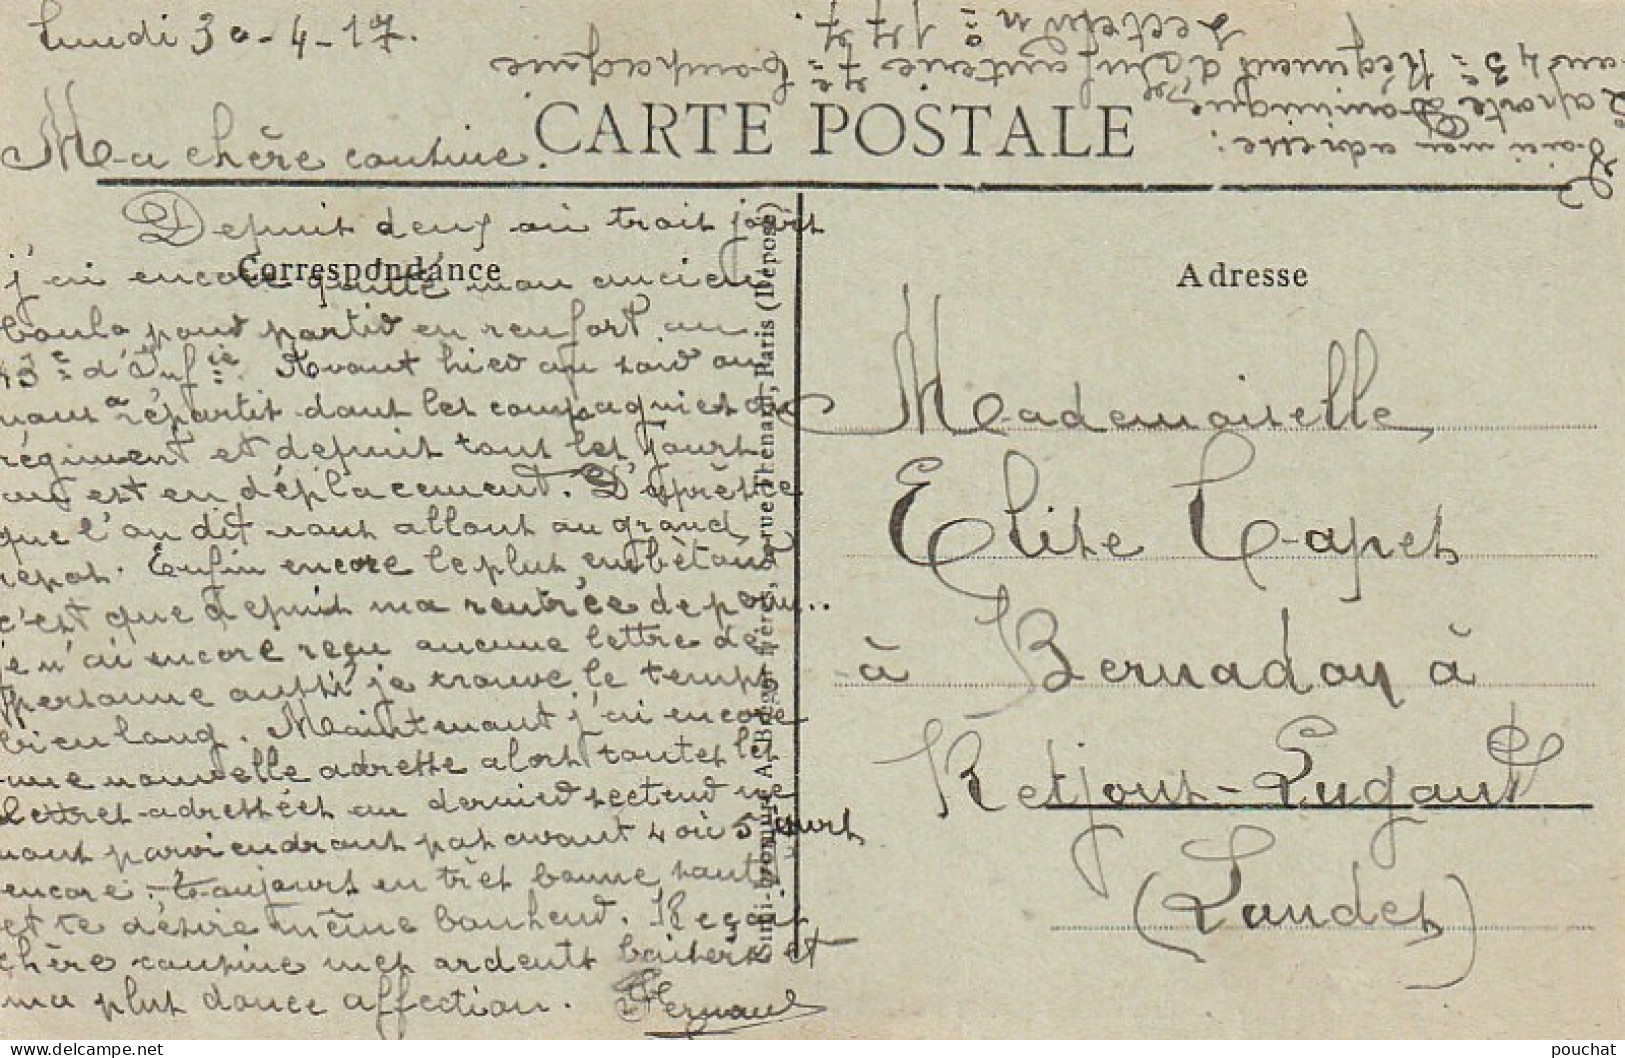 Lundi 30-4-17.
Ma chère cousine.
CARTE POSTALE
Voici mon adresse:
Laporte Dominique, Sel
au 43e Régiment d'Infanterie 7e Compagnie
Secteur no 177.
Correspondance
Depuis deux ou trois jours
j'ai encore quitté mon ancien
boulo pour partir en renfort au
43e d'Infie. Avant hier au soir on
nous a répartis dans les compagnies du
régiment et depuis tous les jours
on est en déplacement. D'après ce
que l'on dit nous allons au grand
repos. Enfin encore le plus embêtant
c'est que depuis ma rentrée de
je n'ai encore reçu aucune lettre de
personne aussi je trouve le temps
bien long. Maintenant j'ai encore
une nouvelle adresse alors toutes les
lettres adressées au dernier secteur ne
vont parviendront pas avant 4 ou 5 jours
encore. Toujours en très bonne santé
et te désire même bonheur. Reçois
chère cousine mes ardents baisers et
ma plus douce affection. Fernand
Simi-bromure A. Breger frères, rue Thenard, Paris (Déposé)
Adresse
Mademoiselle
Elise Capes
à Bernadon à
Retjons-Lugaut
(Landes)
pouchat